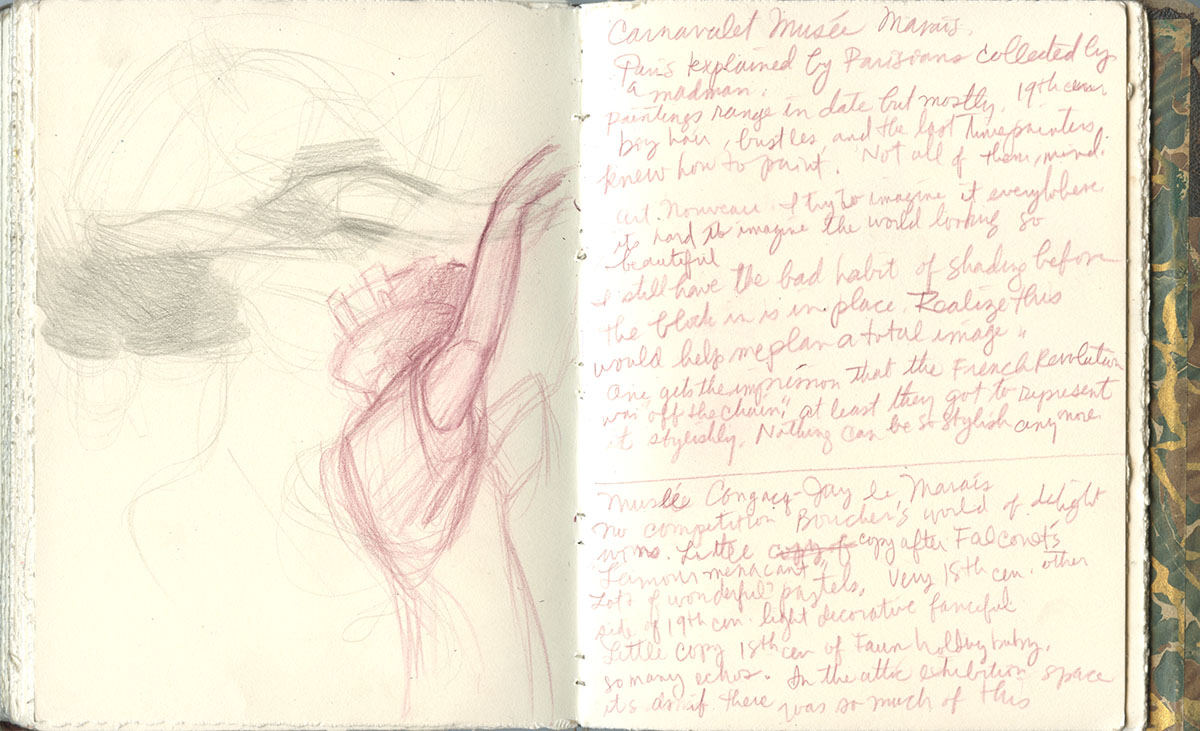 Carnavalet Musée Marais.
Paris explained by Parisians collected by
a madman.
paintings range in date but mostly 19th cen.
boy hair, bustles, and the last time painters
knew how to paint. Not all of them, mind.
Art Nouveau. I try to imagine it everywhere
it's hard to imagine the world looking so
beautiful
I still have the bad habit of shading before
the block in is in place. Realize this
would help me plan a total image"
One gets the impression that the French Revolution
was "off the chain", at least they got to represent
it stylishly. Nothing can be so stylish any more.
Musée Congacq-Jay le Marais
no competition Boucher's world of delight
wins. Little copy after Falconet's
L'amour menacant"
Lots of wonderful pastels, Very 18th cen. other
side of 19th cen. light decorative fanciful
Little copy 18th cen of Faun holding baby.
so many echos. In the attic exhibition space
it's as if there was so much of this